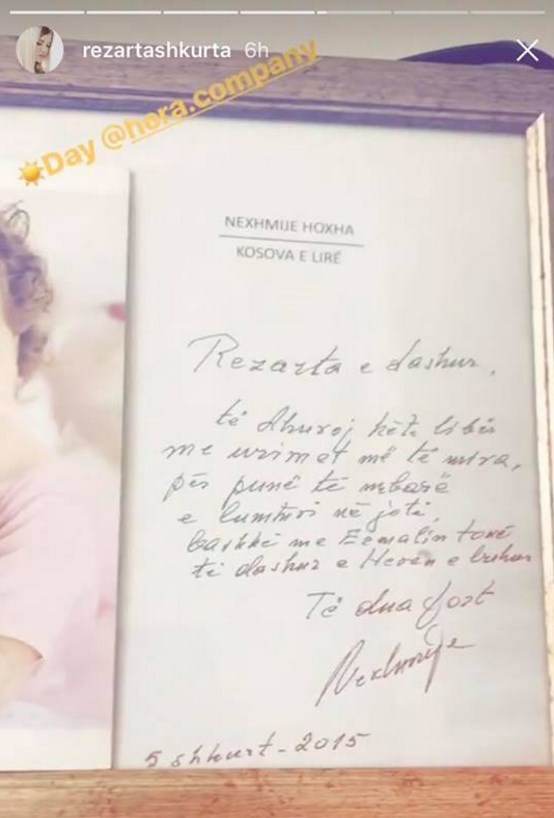 rezartashkurta 6h
☀️Day @hora.company
NEXHMIJE HOXHA
KOSOVA E LIRË
Rezarta e dashur,
të dhuroj këtë libër
me urimet më të mira,
për punë të mbarë
e lumturi në jetë,
bashkë me Ermalin tonë
të dashur e Herën e bukur
Të dua fort
Nexhmije
5 shkurt - 2015